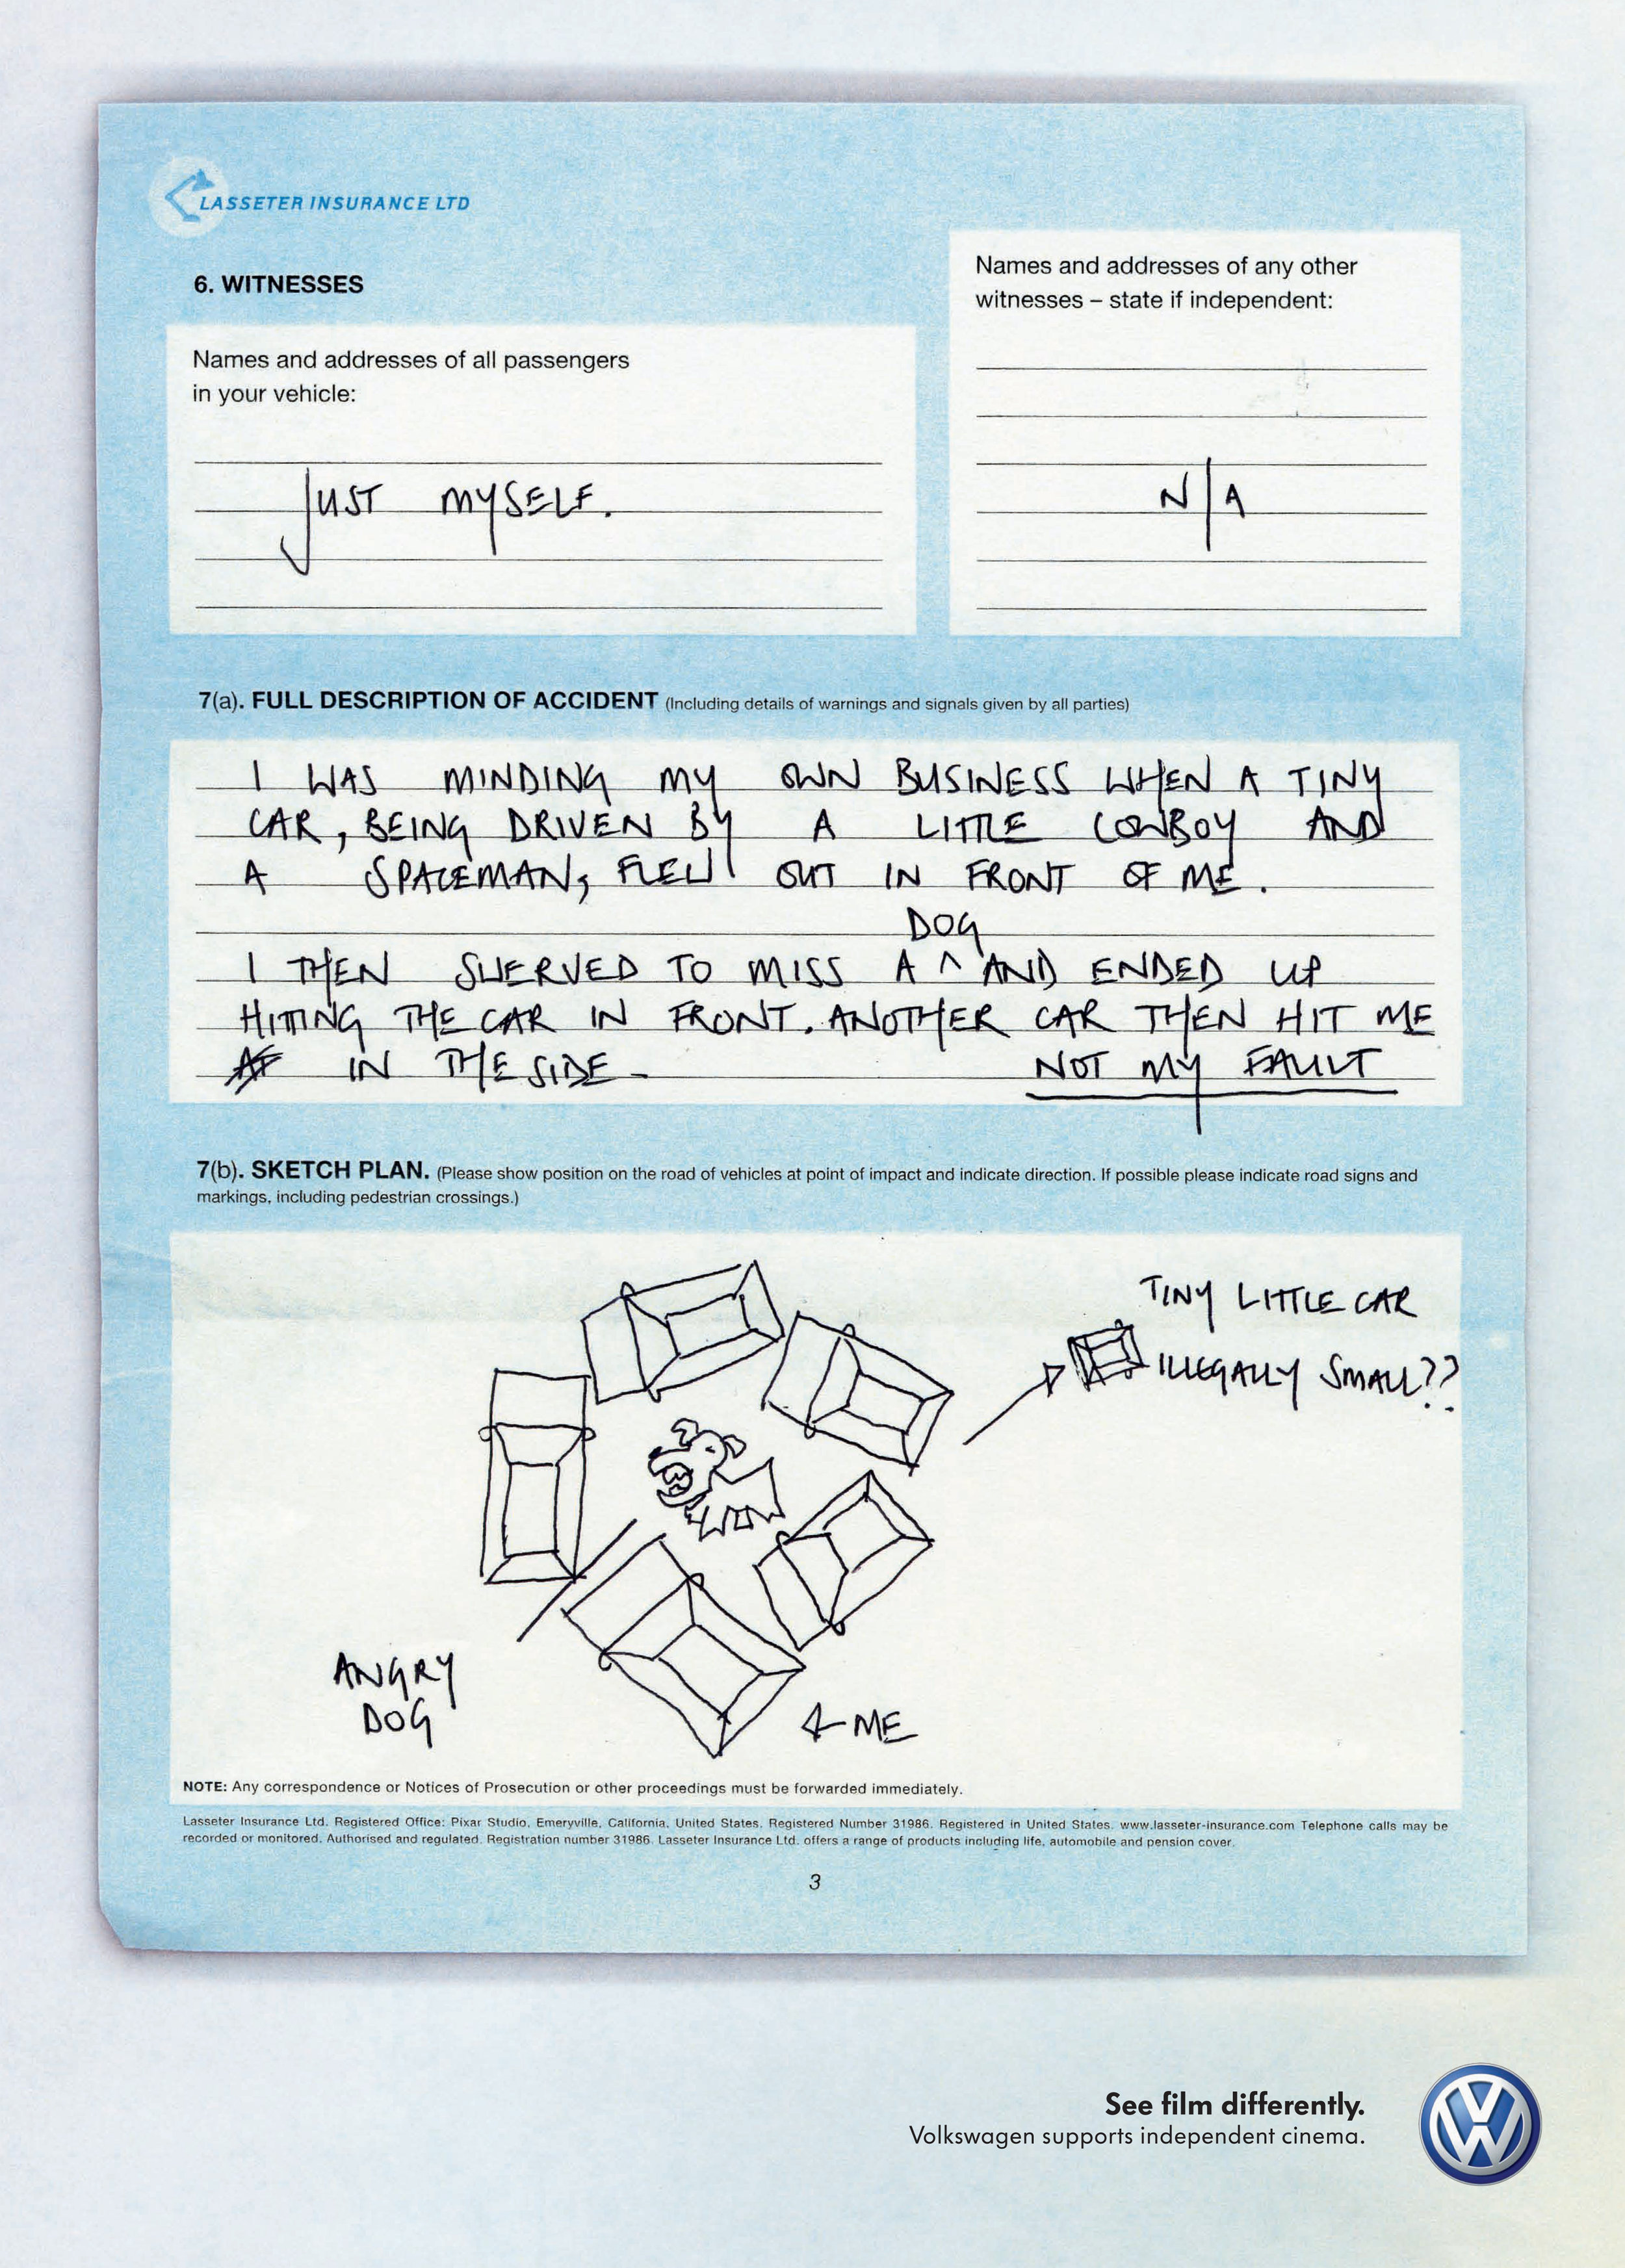 LASSETER INSURANCE LTD
6. WITNESSES
Names and addresses of all passengers
in your vehicle:
JUST MYSELF.
Names and addresses of any other
witnesses – state if independent:
N/A
7(a). FULL DESCRIPTION OF ACCIDENT (Including details of warnings and signals given by all parties)
I WAS MINDING MY OWN BUSINESS WHEN A TINY
CAR, BEING DRIVEN BY A LITTLE COWBOY AND
A SPACEMAN, FLEW OUT IN FRONT OF ME.
DOG
I THEN SWERVED TO MISS A ^ AND ENDED UP
HITTING THE CAR IN FRONT. ANOTHER CAR THEN HIT ME
IN THE SIDE - NOT MY FAULT
7(b). SKETCH PLAN. (Please show position on the road of vehicles at point of impact and indicate direction. If possible please indicate road signs and
markings, including pedestrian crossings.)
TINY LITTLE CAR
ILLEGALLY SMALL??
ANGRY
DOG
ME
NOTE: Any correspondence or Notices of Prosecution or other proceedings must be forwarded immediately.
Lasseter Insurance Ltd. Registered Office: Pixar Studio, Emeryville, California, United States. Registered Number 31986. Registered in United States. www.lasseter-insurance.com Telephone calls may be
recorded or monitored. Authorised and regulated. Registration number 31986. Lasseter Insurance Ltd. offers a range of products including life, automobile and pension cover.
3
See film differently.
Volkswagen supports independent cinema.
VW